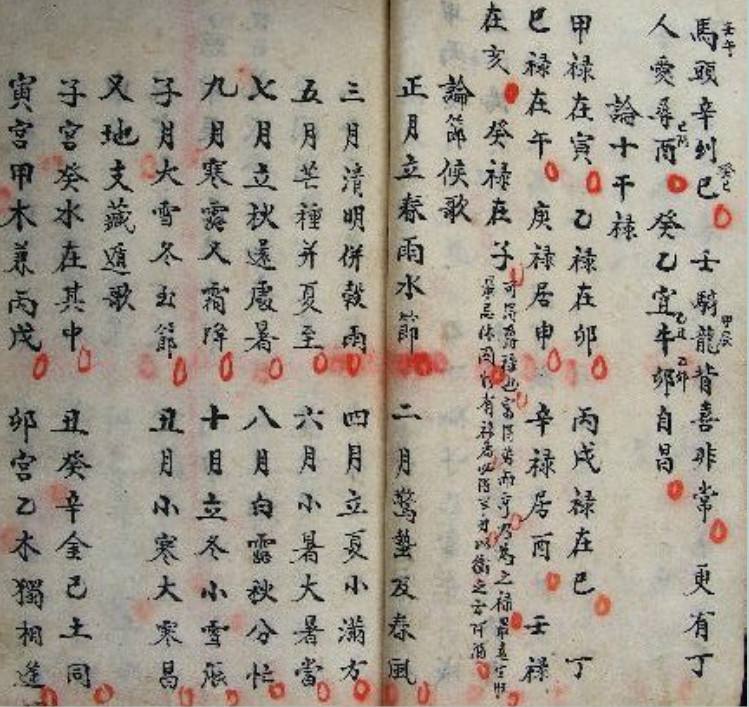 馬頭辛到巳 壬騎龍背喜非常 更有丁
壬午
癸巳
甲辰
人愛尋酉 癸乙宜牛卯自昌
乙丑
乙卯
論十干禄
甲禄在寅 乙禄在卯 丙戌禄在巳 丁
巳禄在午 庚禄居申 辛禄居酉 壬禄
在亥 癸禄在子
論節候歌
正月立春雨水節 二月驚蟄及春風
三月清明併穀雨 四月立夏小滿方
五月芒種并夏至 六月小暑大暑當
七月立秋還處暑 八月白露秋分忙
九月寒露又霜降 十月立冬小雪張
子月大雪冬至節 丑月小寒大寒昌
又地支藏遁歌
子宮癸水在其中 丑癸辛金己土同
寅宮甲木兼丙戌 卯宮乙木獨相逢